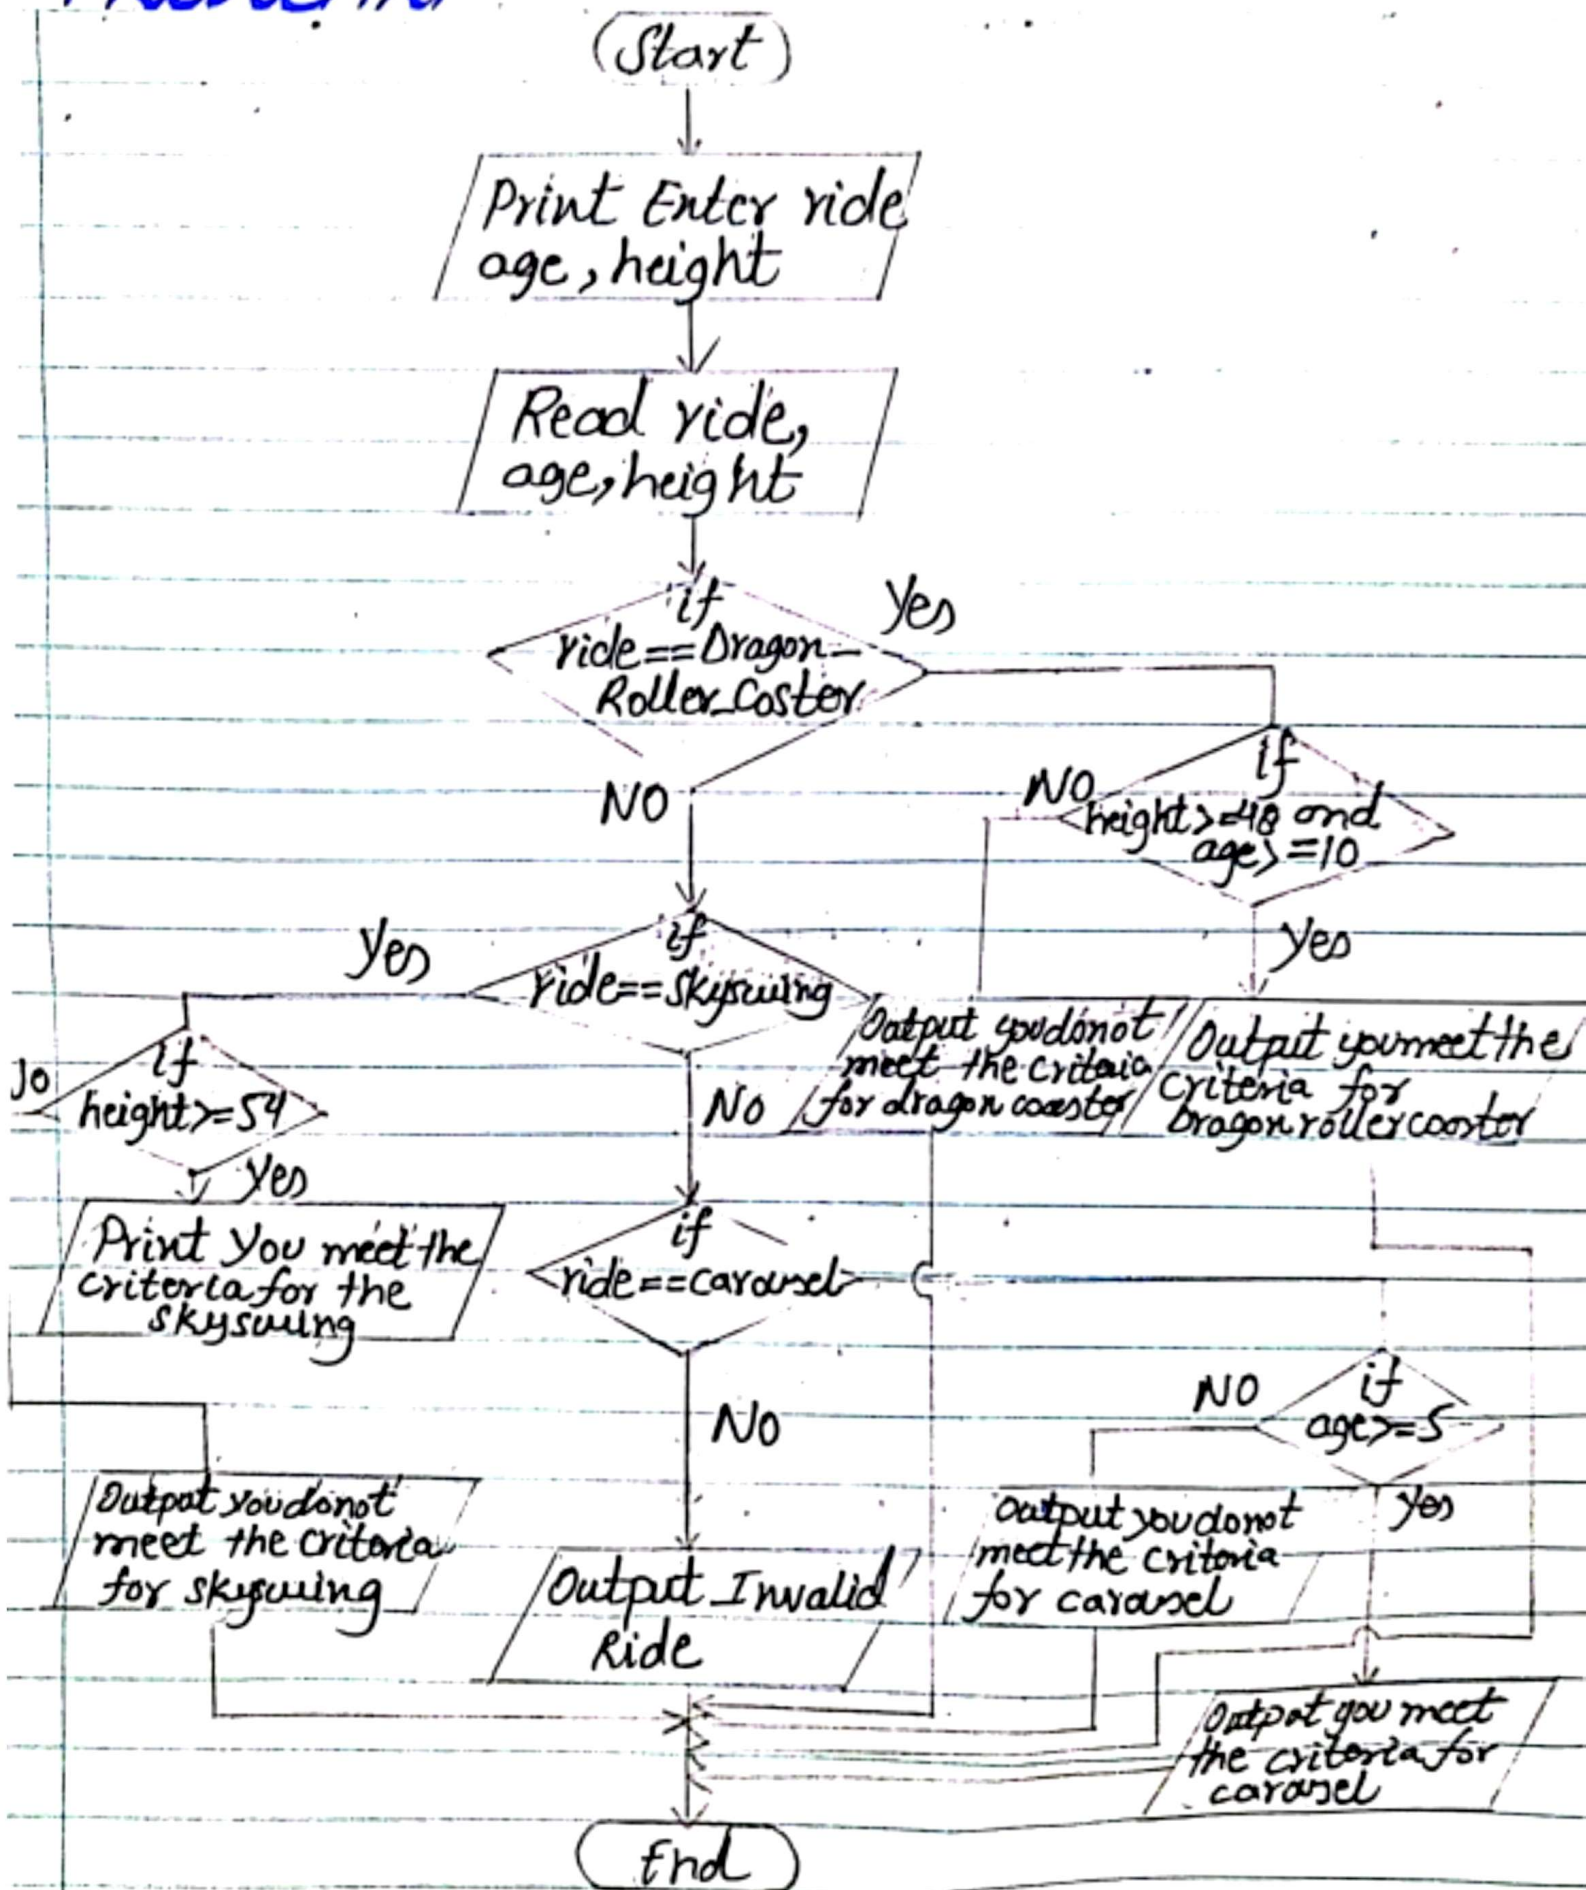 (Start)
Print Enter ride
age, height
Read ride,
age, height
if
ride==Dragon_
Roller_Coster
Yes
NO
if
height>=48 and
age>=10
NO
Yes
if
ride==skyswing
Yes
No
Output you do not
meet the criteria
for dragon coaster
Output you meet the
criteria for
Dragon roller coaster
if
height>=54
Yes
Print You meet the
criteria for the
skyswing
if
ride==carousel
No
if
age>=5
NO
Yes
Output you do not
meet the criteria
for skyswing
Output Invalid
Ride
Output you do not
meet the criteria
for carousel
Output you meet
the criteria for
carousel
End